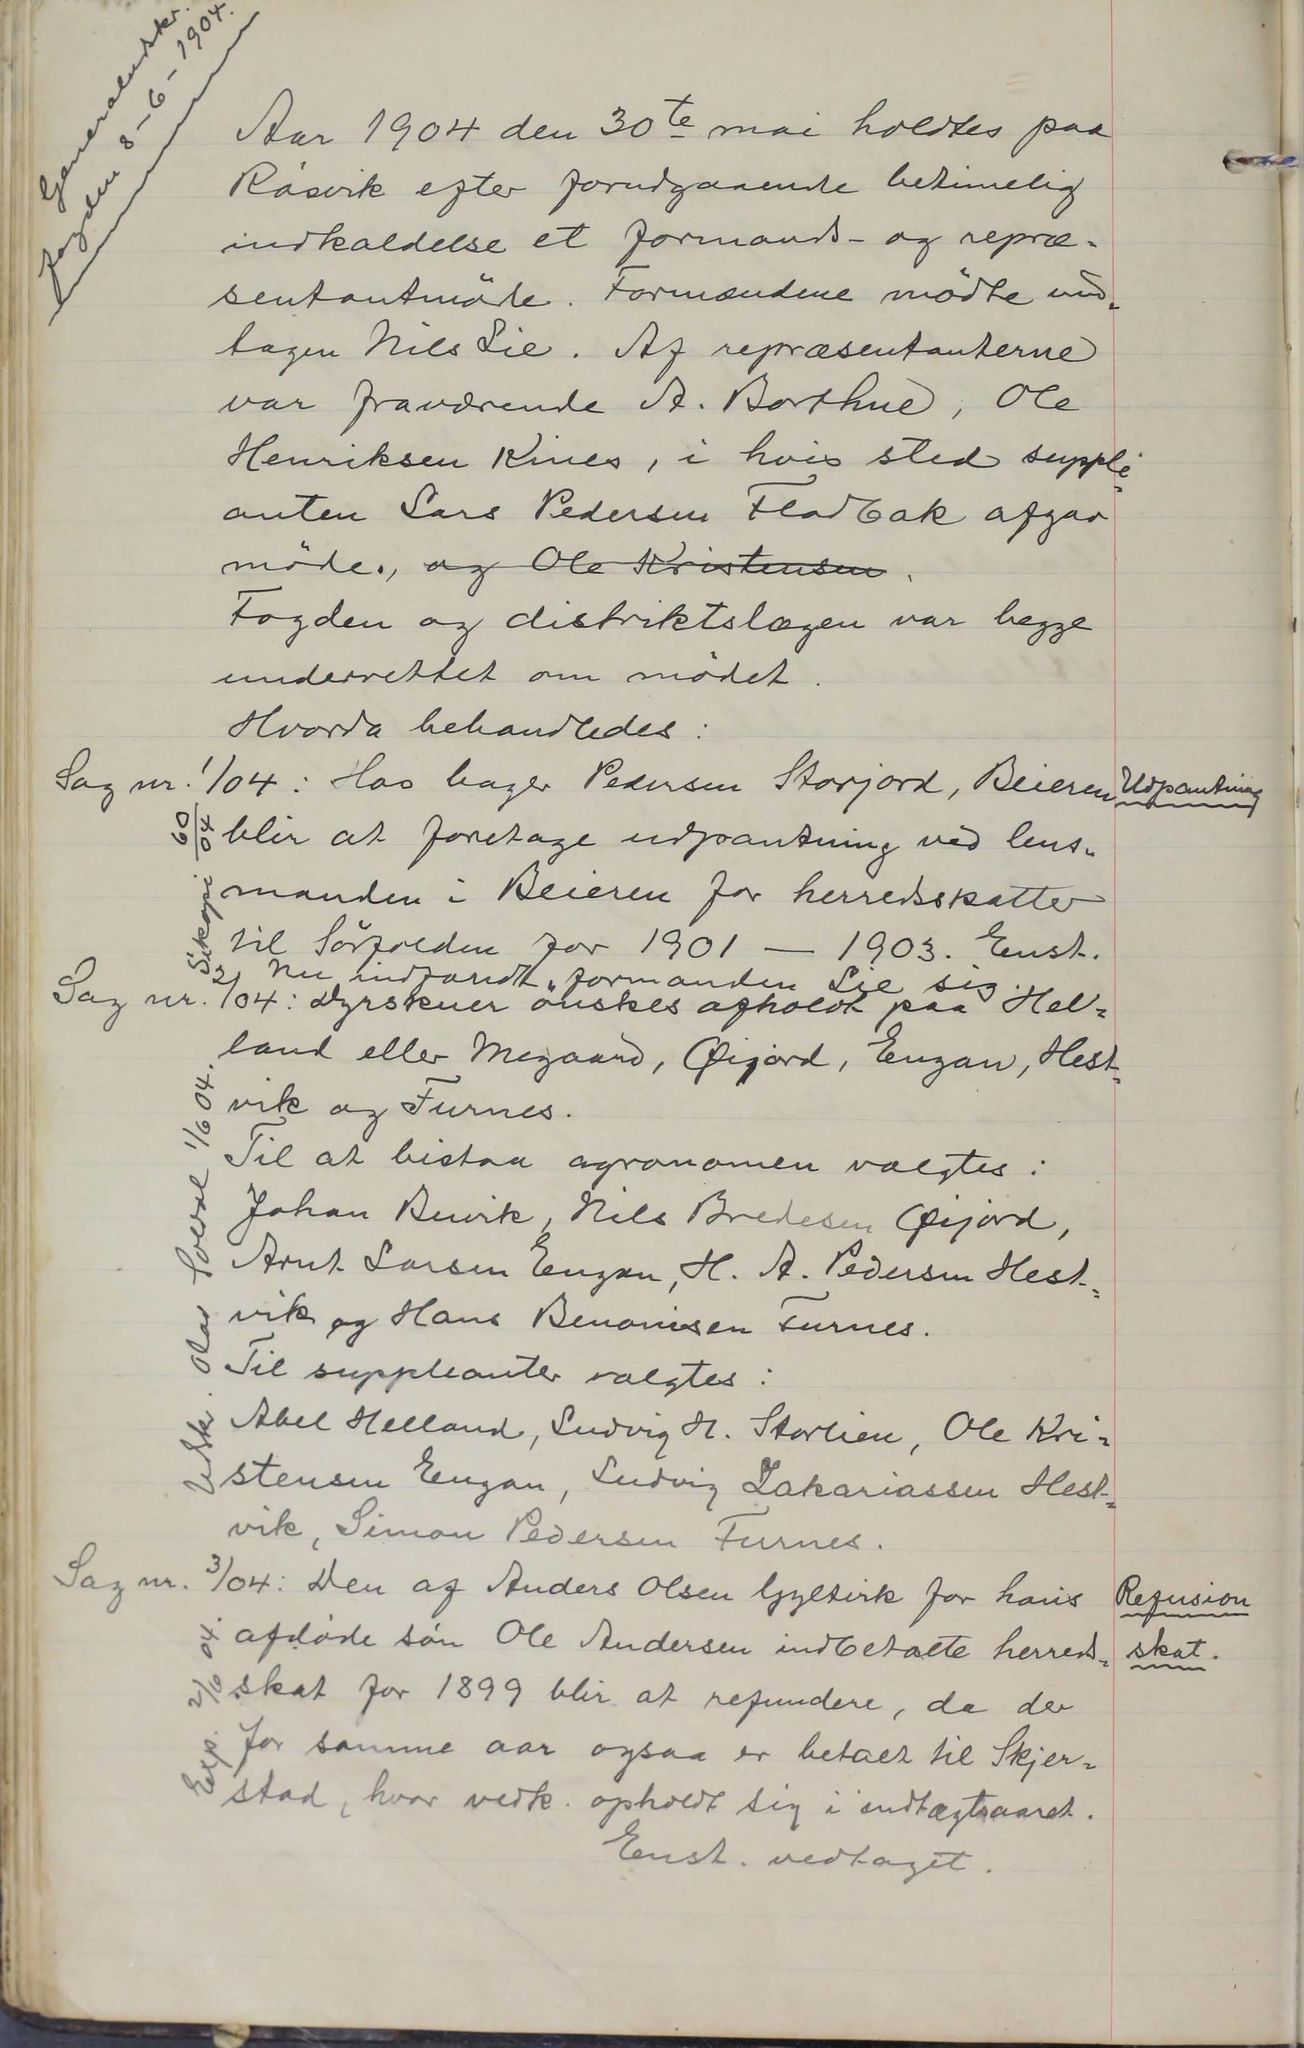 Generaludskr.
fogden 8-6-1904.
Aar 1904 den 30te mai holdtes paa
Røsvik efter forudgaaende betimelig
indkaldelse et formands- og repræ-
sentantmøde. Formændene mødte und-
tagen Nils Lie. Af repræsentanterne
var fraværende A. Borthne, Ole
Henriksen Kines, i hvis sted suppli-
anten Lars Pedersen Fladbak afgav
møde., og Ole Kristensen.
Fogden og distriktslægen var begge
underrettet om mødet.
Hvorda behandledes:
Sag nr. 1/04: Hos bager Pedersen Storjord, Beieren
Udpantning
blir at foretage udpantning ved lens-
manden i Beieren for herredsskatter
til Sørfolden for 1901 — 1903. Enst.
60/04
Nu indfandt formanden Lie sig.
Sag nr. 2/04: Dyrskuer ønskes afholdt paa Hel-
land eller Megaard, Øijord, Engan, Hest-
vik og Furnes.
Til at bistaa agronomen valgtes:
Johan Buvik, Nils Bredesen Øijord,
Arnt Larsen Engan, H. A. Pedersen Hest-
vik og Hans Benonisen Furnes.
Til suppleanter valgtes:
Abel Helland, Ludvig H. Storlien, Ole Kri-
stensen Engan, Ludvig Zakariassen Hest-
vik, Simon Pedersen Furnes.
Udskr. Olav 1/6 04.
Sag nr. 3/04: Den af Anders Olsen Gyltvik for hans
Refusion
afdøde søn Ole Andersen indbetalte herreds-
skat.
skat for 1899 blir at refundere, da der
for samme aar ogsaa er betalt til Skjer-
stad, hvor vedk. opholdt sig i indtægtsaaret.
Enst. vedtaget.
Exp. 2/6 04.